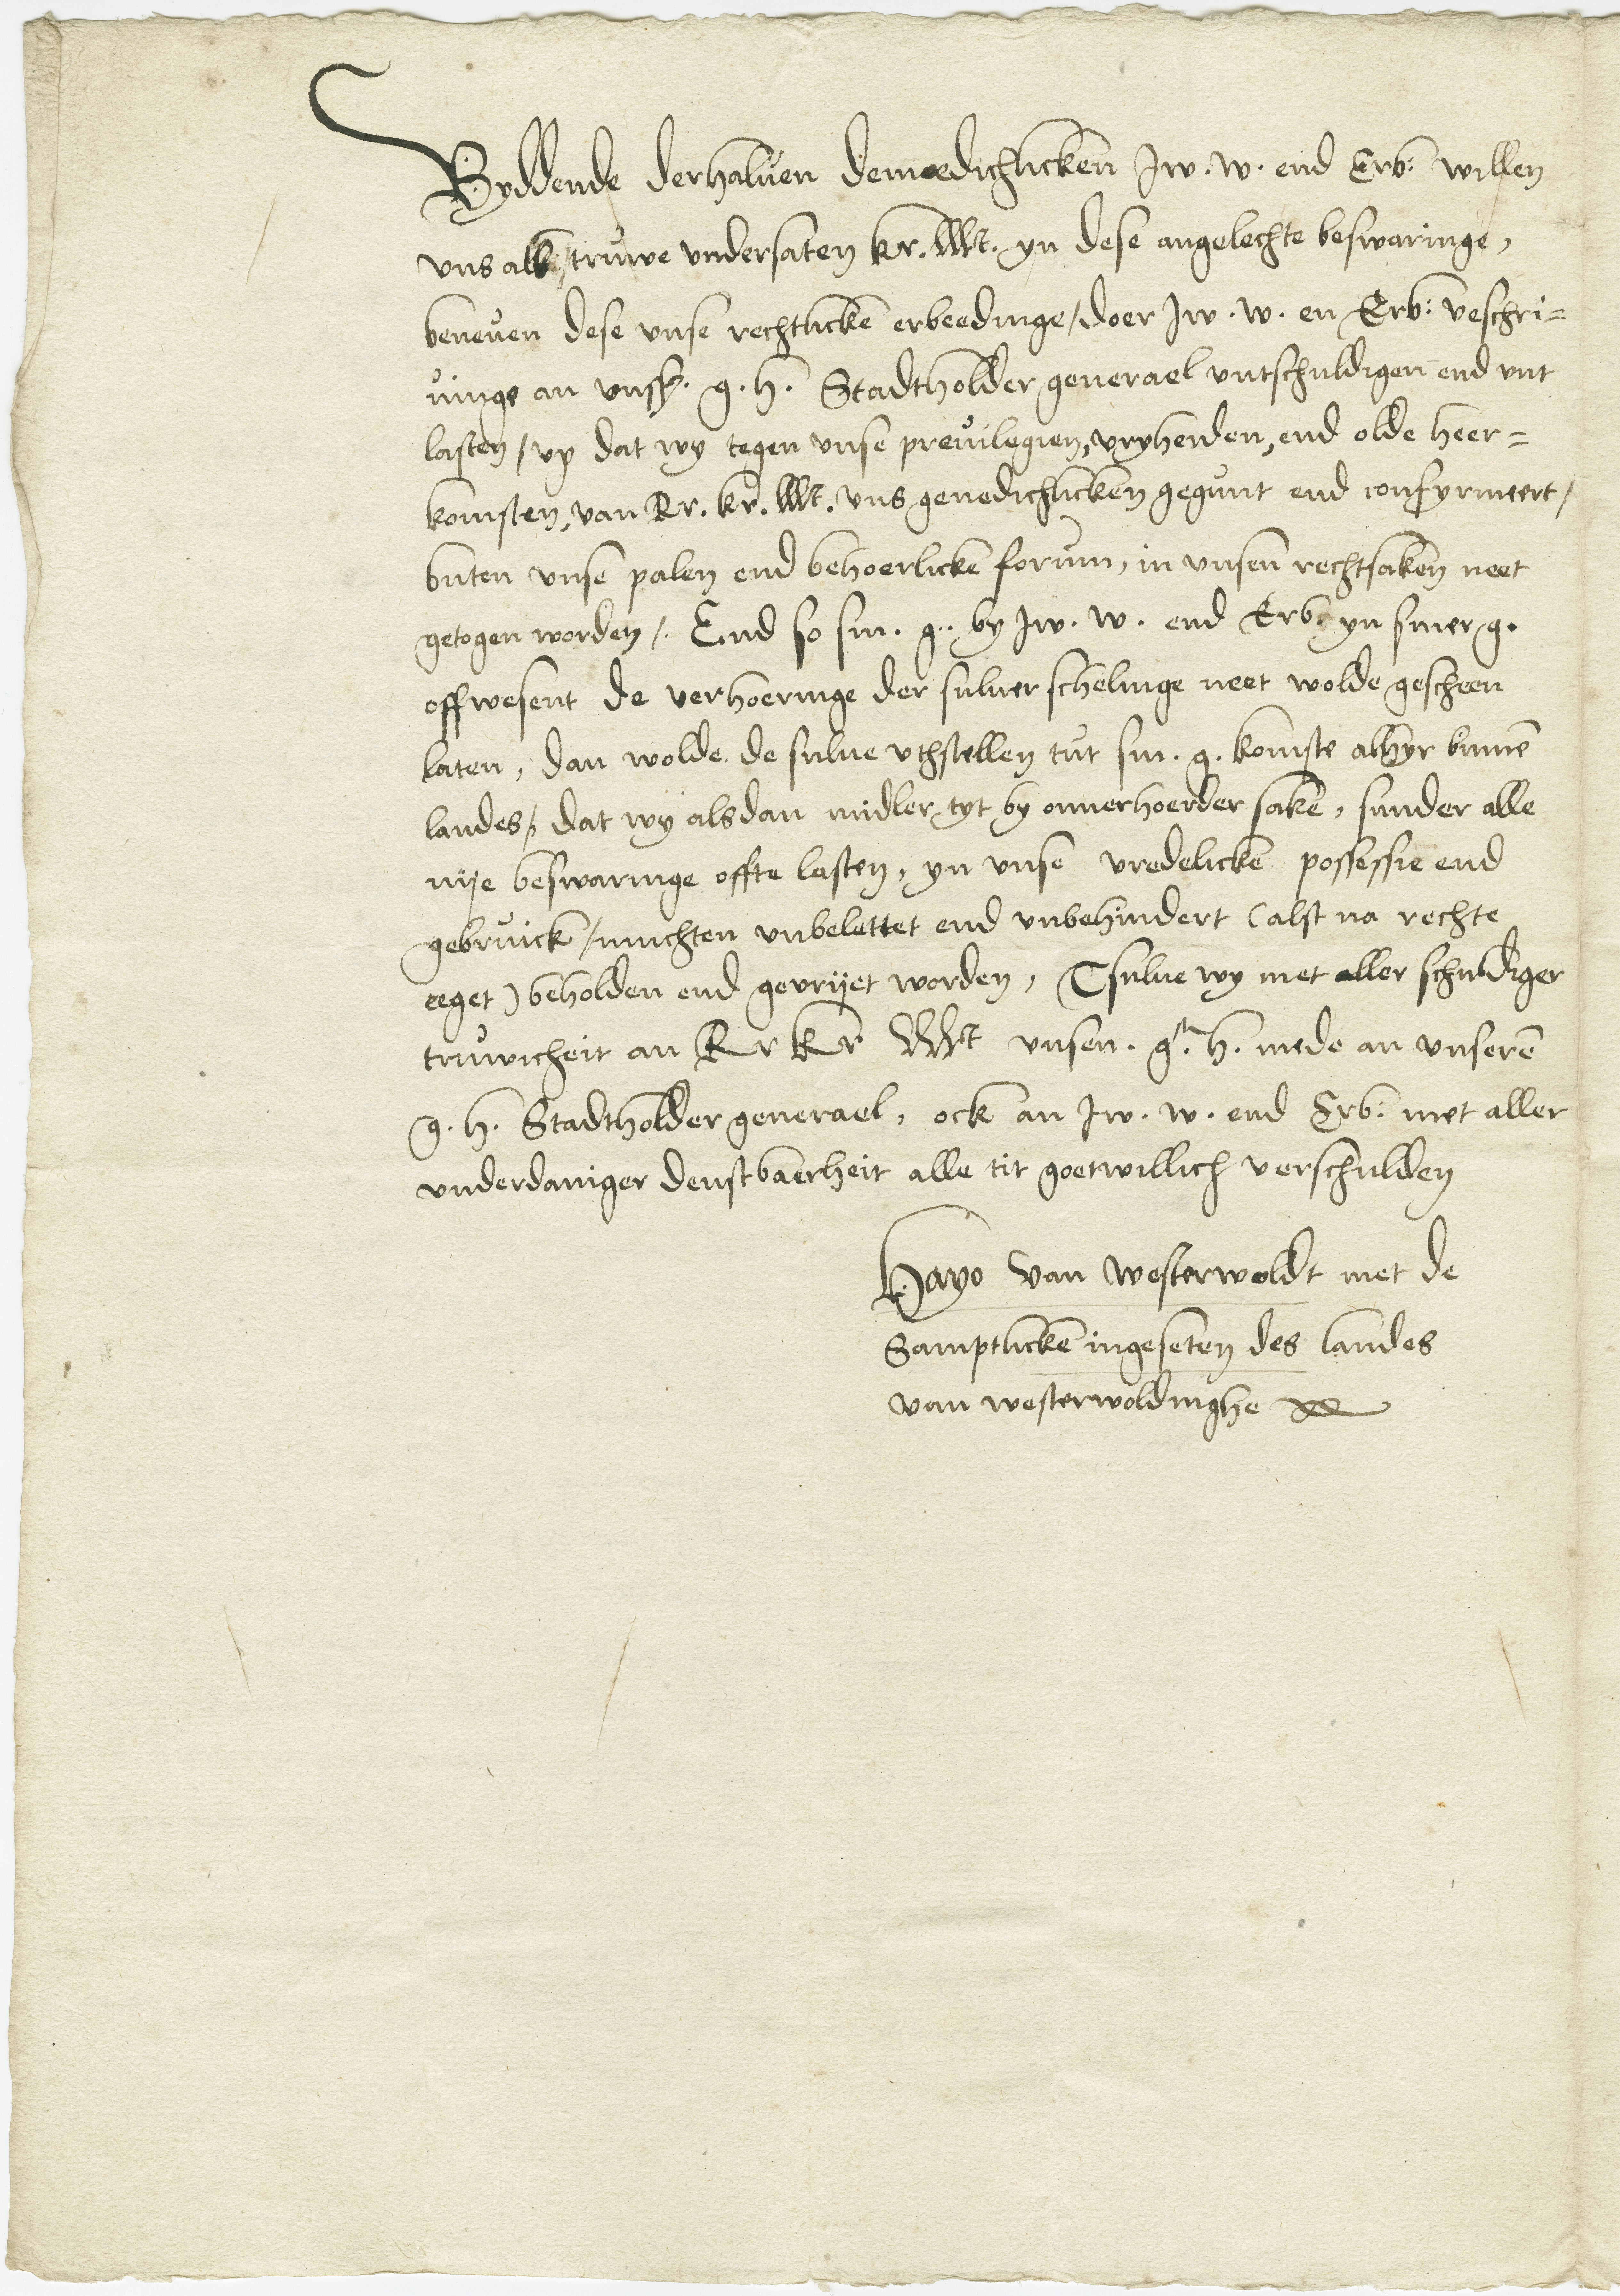 Byddende derhaluen demoedichlicken Jw. w. end Erb: willen
vns als truwe vndersaten kr. Mt. yn dese angelechte beswaringe,
beneuen dese vnse rechtlicke erbeedinge / doer Jw. w. en Erb: beschri=
uinge an vnsz. g. h. Stadtholder generael vntschuldigen end vnt
lasten / vp dat wy tegen vnse preuilegien, vryheiden, end olde heer=
komsten, van Rr. kr. Mt. vns genedichlicken gegunt end confyrmeert /
buten vnse palen end behoerlicke forum, in vnsen rechtsaken neet
getogen worden /. End so sin. g. by Jw. w. end Erb: yn siner g.
offwesent de verhoeringe der suluer schelinge neet wolde gescheen
laten, dan wolde de sulue vthstellen tut sin. g. komste alhyr binnē
landes / dat wy alsdan midler tyt by onuerhoerder sakē, sunder alle
nije beswaringe offte lasten, yn vnse vredelicke possessie end
gebruick / muchten vnbelettet end vnbehindert (alst na rechte
eeget) beholden end gevrijet worden, Tsulue wy met aller schuldiger
truwicheit an Rr kr Mt vnsen. gn. h. mede an vnserē
g. h. Stadtholder generael, ock an Jw. w. end Erb: met aller
vnderdaniger denstbaerheit alle tit goetwillich verschulden
Hayo van westerwoldt met de
Samptlickē ingeseten des landes
van westerwoldinghe